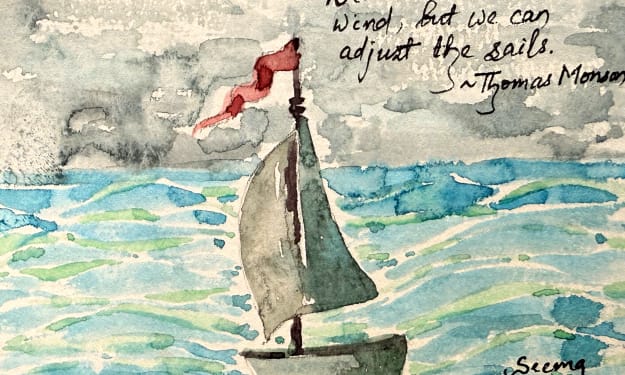 wind, but we can
adjust the sails.
~Thomas Monson
Seema